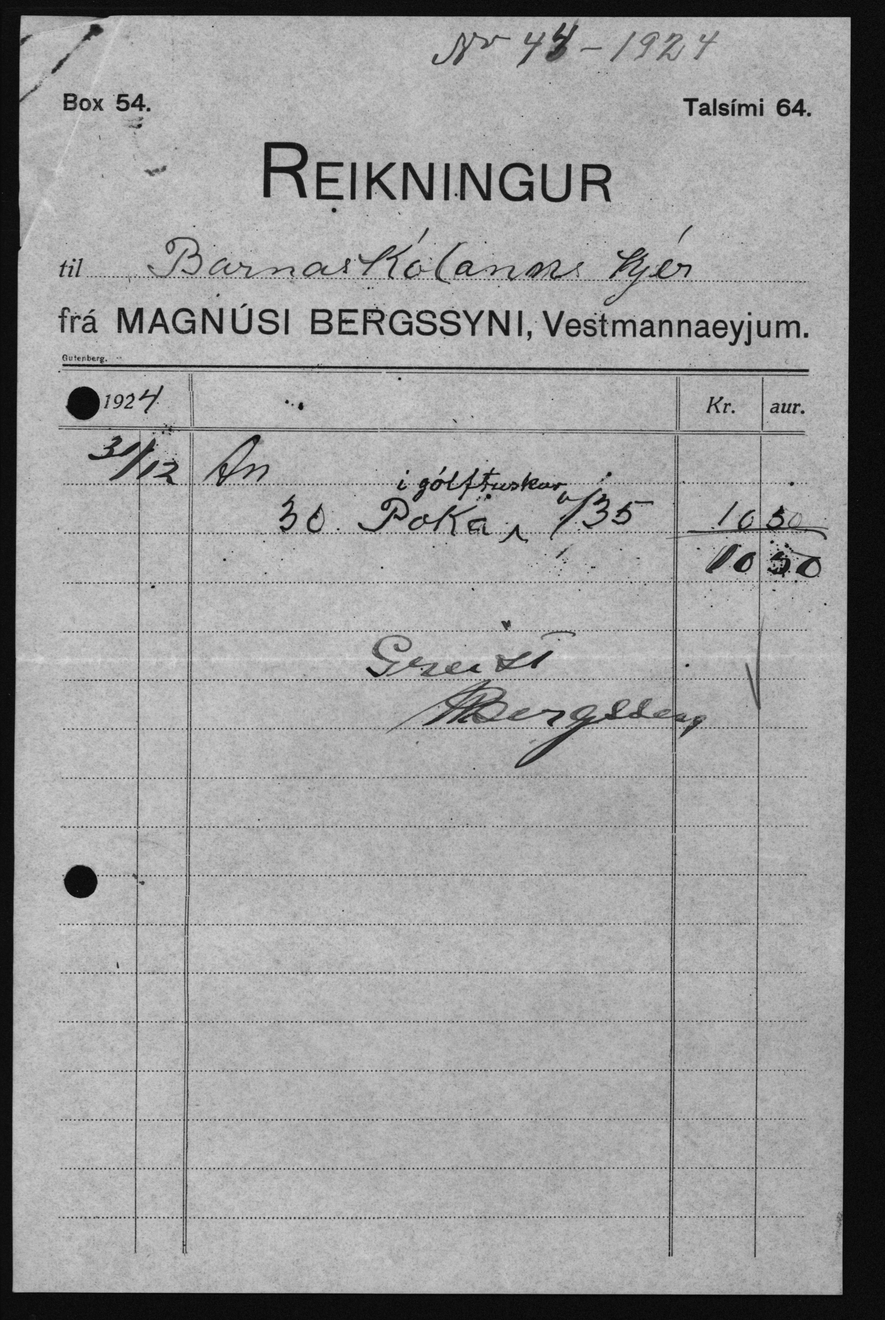 Nr 44 - 1924
Box 54. Talsími 64.
REIKNINGUR
til Barnaskólanns hjér
frá MAGNÚSI BERGSSYNI, Vestmannaeyjum.
Gutenberg.
1924 Kr. aur.
31/12 An
i gólftuskur
30 Poka /35 10 50
10 50
Greitt
MBergsson